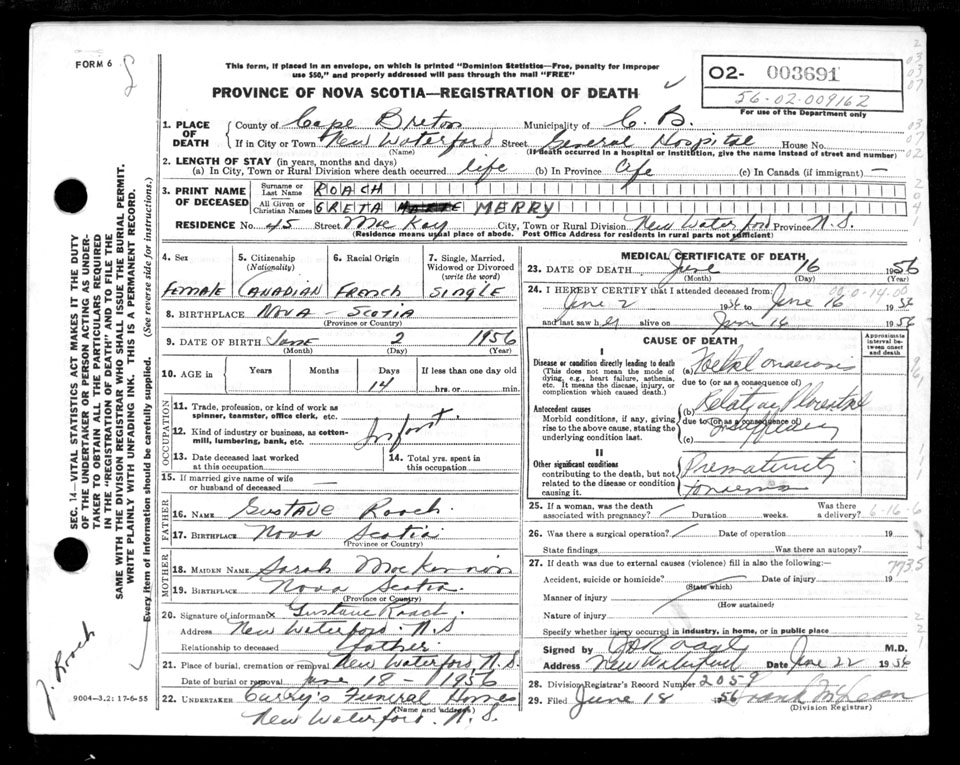 FORM 6
This form, if placed in an envelope, on which is printed "Dominion Statistics—Free, penalty for improper
use $50," and properly addressed will pass through the mail "FREE"
PROVINCE OF NOVA SCOTIA—REGISTRATION OF DEATH
02- 003691
56-02-009162
For use of the Department only
1. PLACE OF DEATH
County of Cape Breton Municipality of C. B.
If in City or Town New Waterford Street General Hospital House No.
(Name) (If death occurred in a hospital or institution, give the name instead of street and number)
2. LENGTH OF STAY (in years, months and days)
(a) In City, Town or Rural Division where death occurred life (b) In Province life (c) In Canada (if immigrant) —
3. PRINT NAME OF DECEASED
Surname or Last Name ROACH
All Given or Christian Names GRETA MERRY
RESIDENCE No. 45 Street MacKay City, Town or Rural Division New Waterford Province N.S.
(Residence means usual place of abode. Post Office Address for residents in rural parts not sufficient)
4. Sex
Female
5. Citizenship
(Nationality)
Canadian
6. Racial Origin
French
7. Single, Married,
Widowed or Divorced
(write the word)
Single
8. BIRTHPLACE Nova - Scotia
(Province or Country)
9. DATE OF BIRTH June 2 1956
(Month) (Day) (Year)
10. AGE in
Years Months Days If less than one day old
14 hrs. or min.
OCCUPATION
11. Trade, profession, or kind of work as
spinner, teamster, office clerk, etc.
12. Kind of industry or business, as cotton-
mill, lumbering, bank, etc.
Infant
13. Date deceased last worked
at this occupation
14. Total yrs. spent in
this occupation
15. If married give name of wife
or husband of deceased —
FATHER
16. NAME Gustave Roach.
17. BIRTHPLACE Nova Scotia
(Province or Country)
MOTHER
18. MAIDEN NAME Sarah MacKinnon
19. BIRTHPLACE Nova Scotia.
(Province or Country)
20. Signature of informant x Gustave Roach.
Address New Waterford. N.S
Relationship to deceased Father
21. Place of burial, cremation or removal New Waterford N.S.
Date of burial or removal June 18 - 1956
22. UNDERTAKER Curry's Funeral Homes
(Name and address)
New Waterford. N.S.
MEDICAL CERTIFICATE OF DEATH
23. DATE OF DEATH June 16 1956
(Month) (Day) (Year)
24. I HEREBY CERTIFY that I attended deceased from:
June 2 1956 to June 16 1956
and last saw her alive on June 16 1956
CAUSE OF DEATH
Approximate
interval be-
tween onset
and death
I
Disease or condition directly leading to death
(This does not mean the mode of
dying, e.g., heart failure, asthenia,
etc. It means the disease, injury, or
complication which caused death.)
(a)
due to (or as a consequence of)
Antecedent causes
Morbid conditions, if any, giving
rise to the above cause, stating the
underlying condition last.
(b)
due to (or as a consequence of)
(c)
II
Other significant conditions
contributing to the death, but not
related to the disease or condition
causing it.
Prematurity
25. If a woman, was the death
associated with pregnancy? Duration weeks. Was there
a delivery? 6-16-6
26. Was there a surgical operation? Date of operation 19
State findings Was there an autopsy?
27. If death was due to external causes (violence) fill in also the following:—
7735
Accident, suicide or homicide? Date of injury 19
(State which)
Manner of injury
(How sustained)
Nature of injury
Specify whether injury occurred in industry, in home, or in public place
Signed by M.D.
Address New Waterford Date June 22 1956
28. Division Registrar's Record Number 2059
29. Filed June 18 1956 Frank McLean
(Division Registrar)
SEC. 14—VITAL STATISTICS ACT MAKES IT THE DUTY
OF THE UNDERTAKER OR PERSON ACTING AS UNDER-
TAKER TO OBTAIN ALL THE PARTICULARS REQUIRED
IN THE "REGISTRATION OF DEATH" AND TO FILE THE
SAME WITH THE DIVISION REGISTRAR WHO SHALL ISSUE THE BURIAL PERMIT.
WRITE PLAINLY WITH UNFADING INK. THIS IS A PERMANENT RECORD.
Every item of information should be carefully supplied. (See reverse side for instructions.)
J. Roach
9004—3.2: 17-6-55